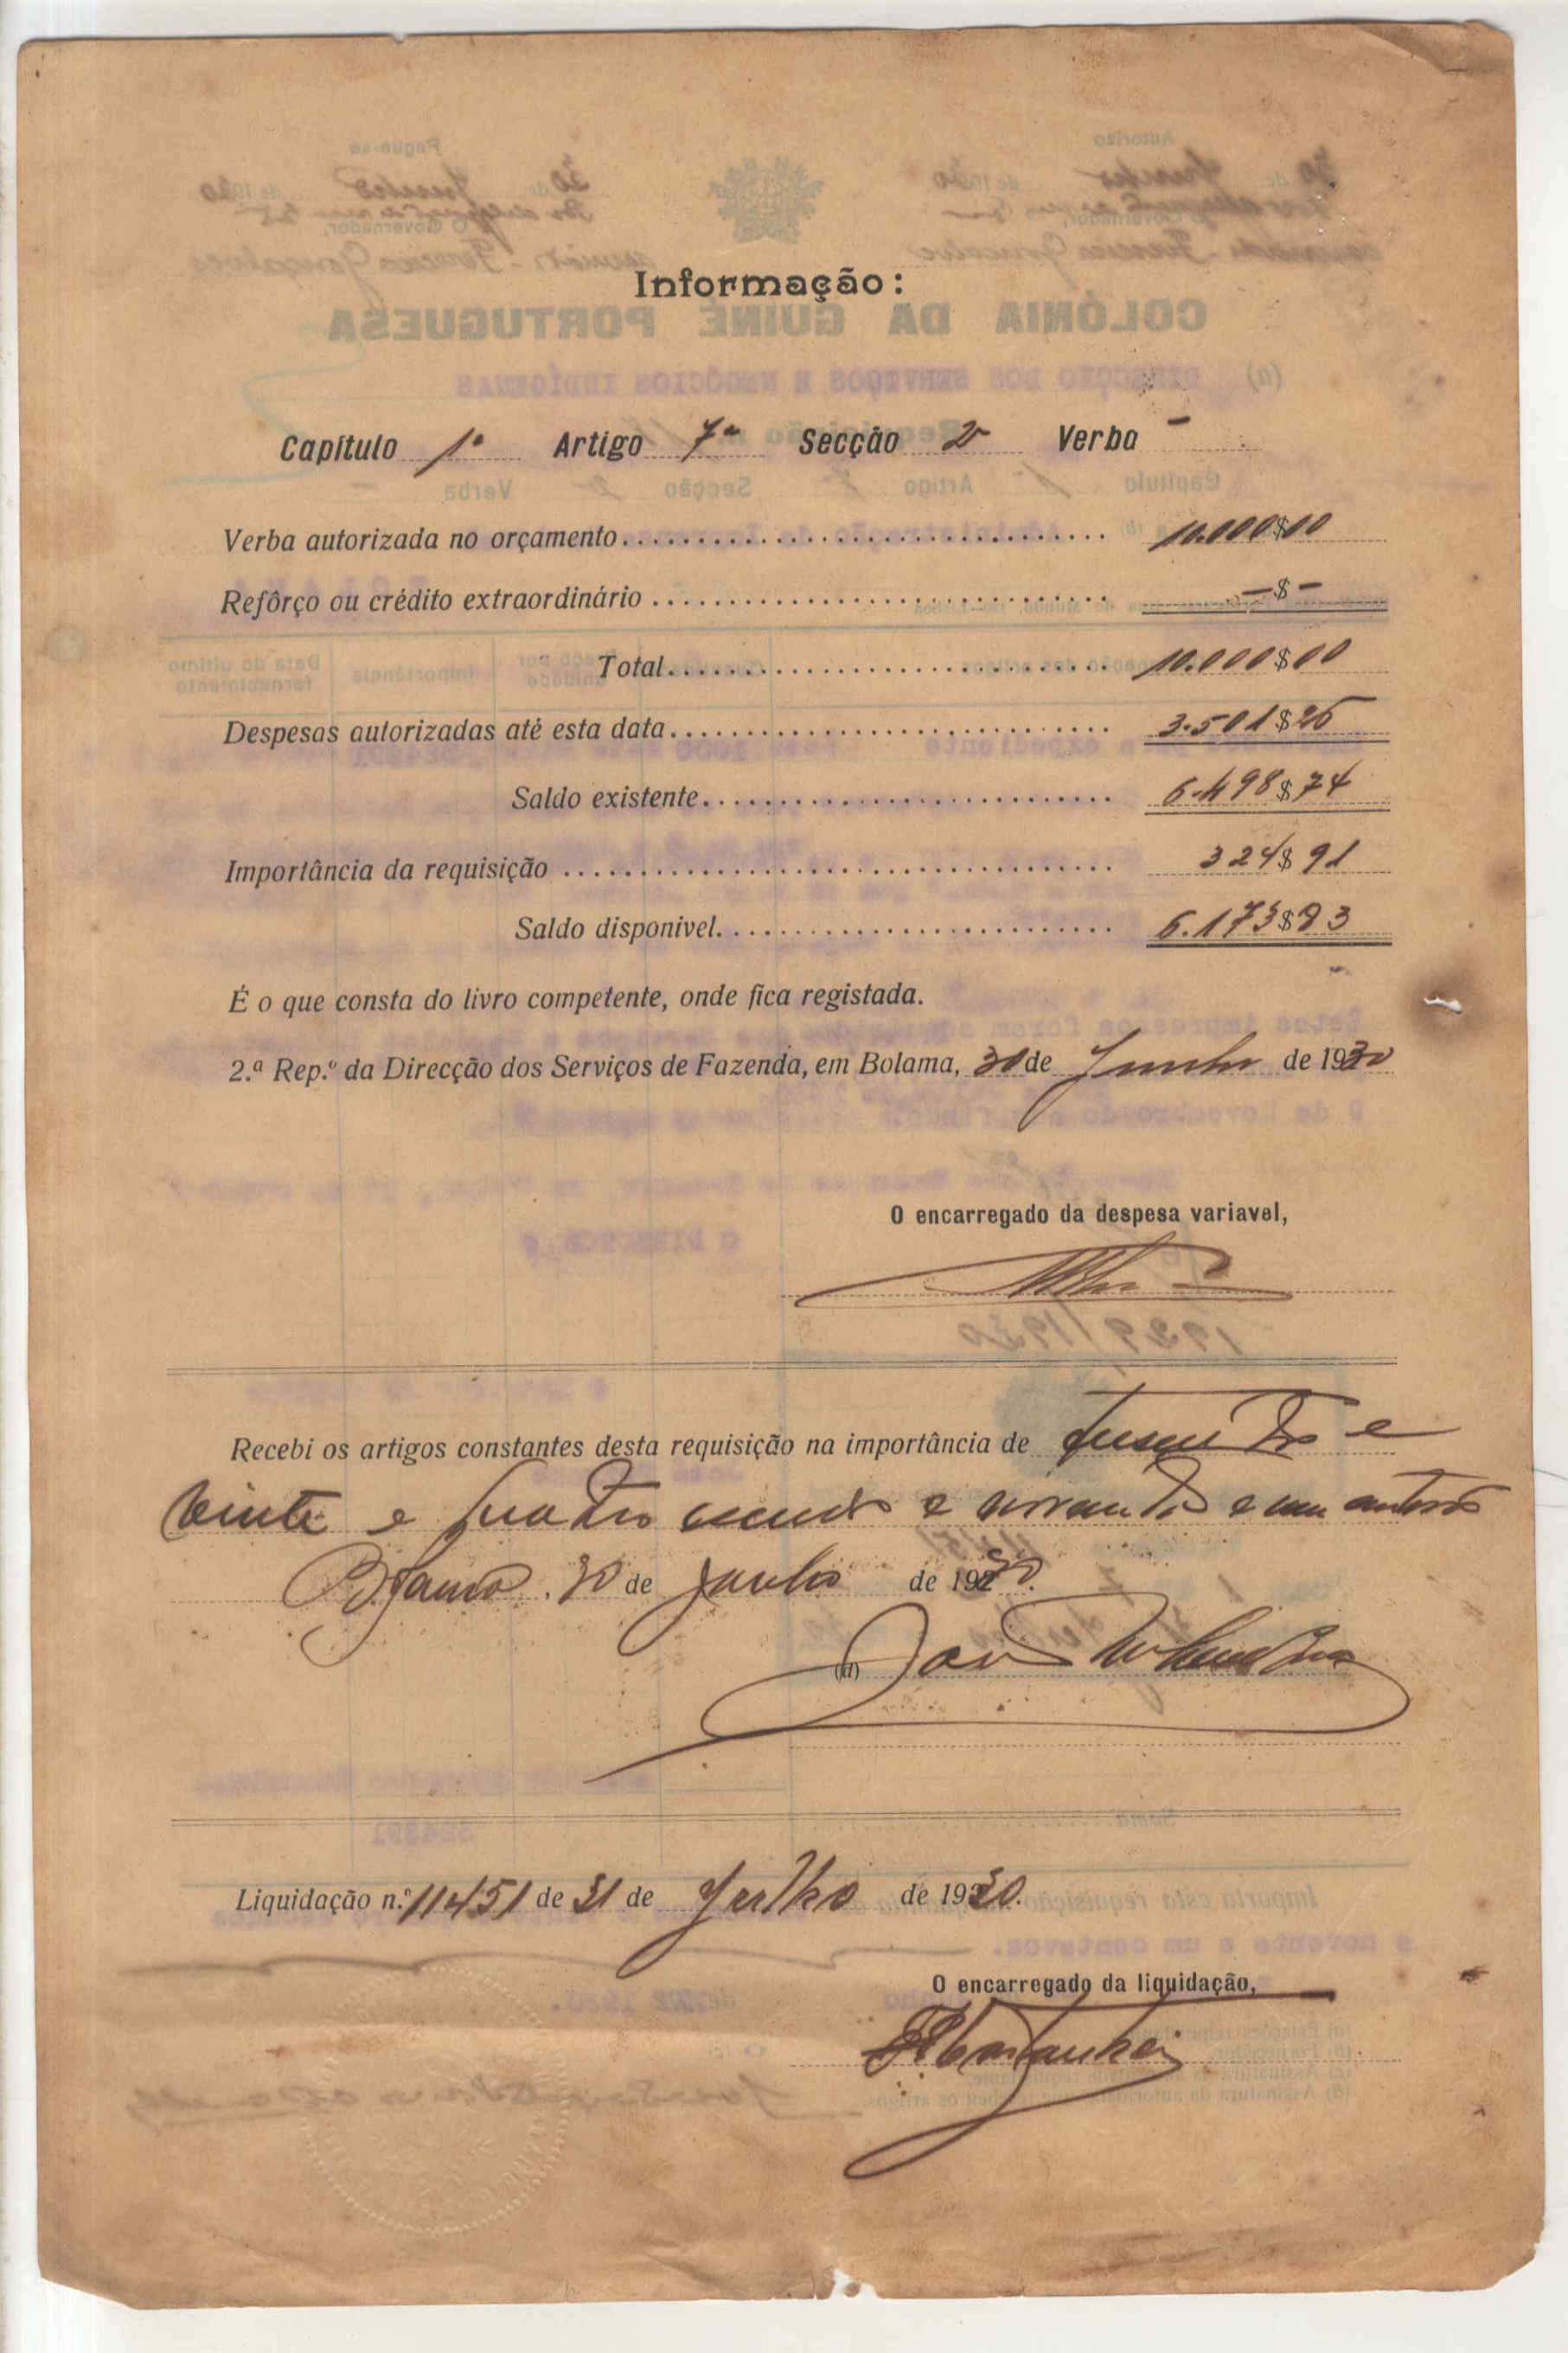 Informação:
Capítulo 1º Artigo 7º Secção 2ª Verba -
Verba autorizada no orçamento 10.000$00
Refôrço ou crédito extraordinário -$-
Total 10.000$00
Despesas autorizadas até esta data 3.501$26
Saldo existente 6.498$74
Importância da requisição 324$91
Saldo disponivel 6.173$83
É o que consta do livro competente, onde fica registada.
2.ª Rep.º da Direcção dos Serviços de Fazenda, em Bolama, 30 de Junho de 1930
O encarregado da despesa variavel,
Recebi os artigos constantes desta requisição na importância de tresentos e
vinte e quatro escudos e noventa e um centavos
Bolama, 30 de Junho de 1930.
(d)
Liquidação n.º 11451 de 31 de Julho de 1930.
O encarregado da liquidação,